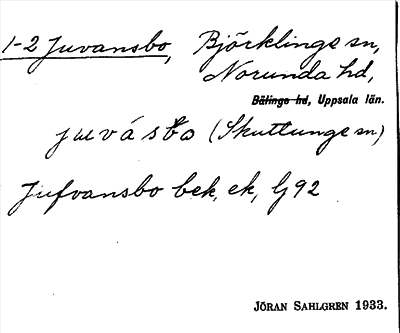 1-2 Juvansbo, Björklinge sn,
Norunda hd,
Bälinge hd, Uppsala län.
juvásbo (Skuttunge sn)
Jufvansbo bek, ek, Lj 92
JÖRAN SAHLGREN 1933.